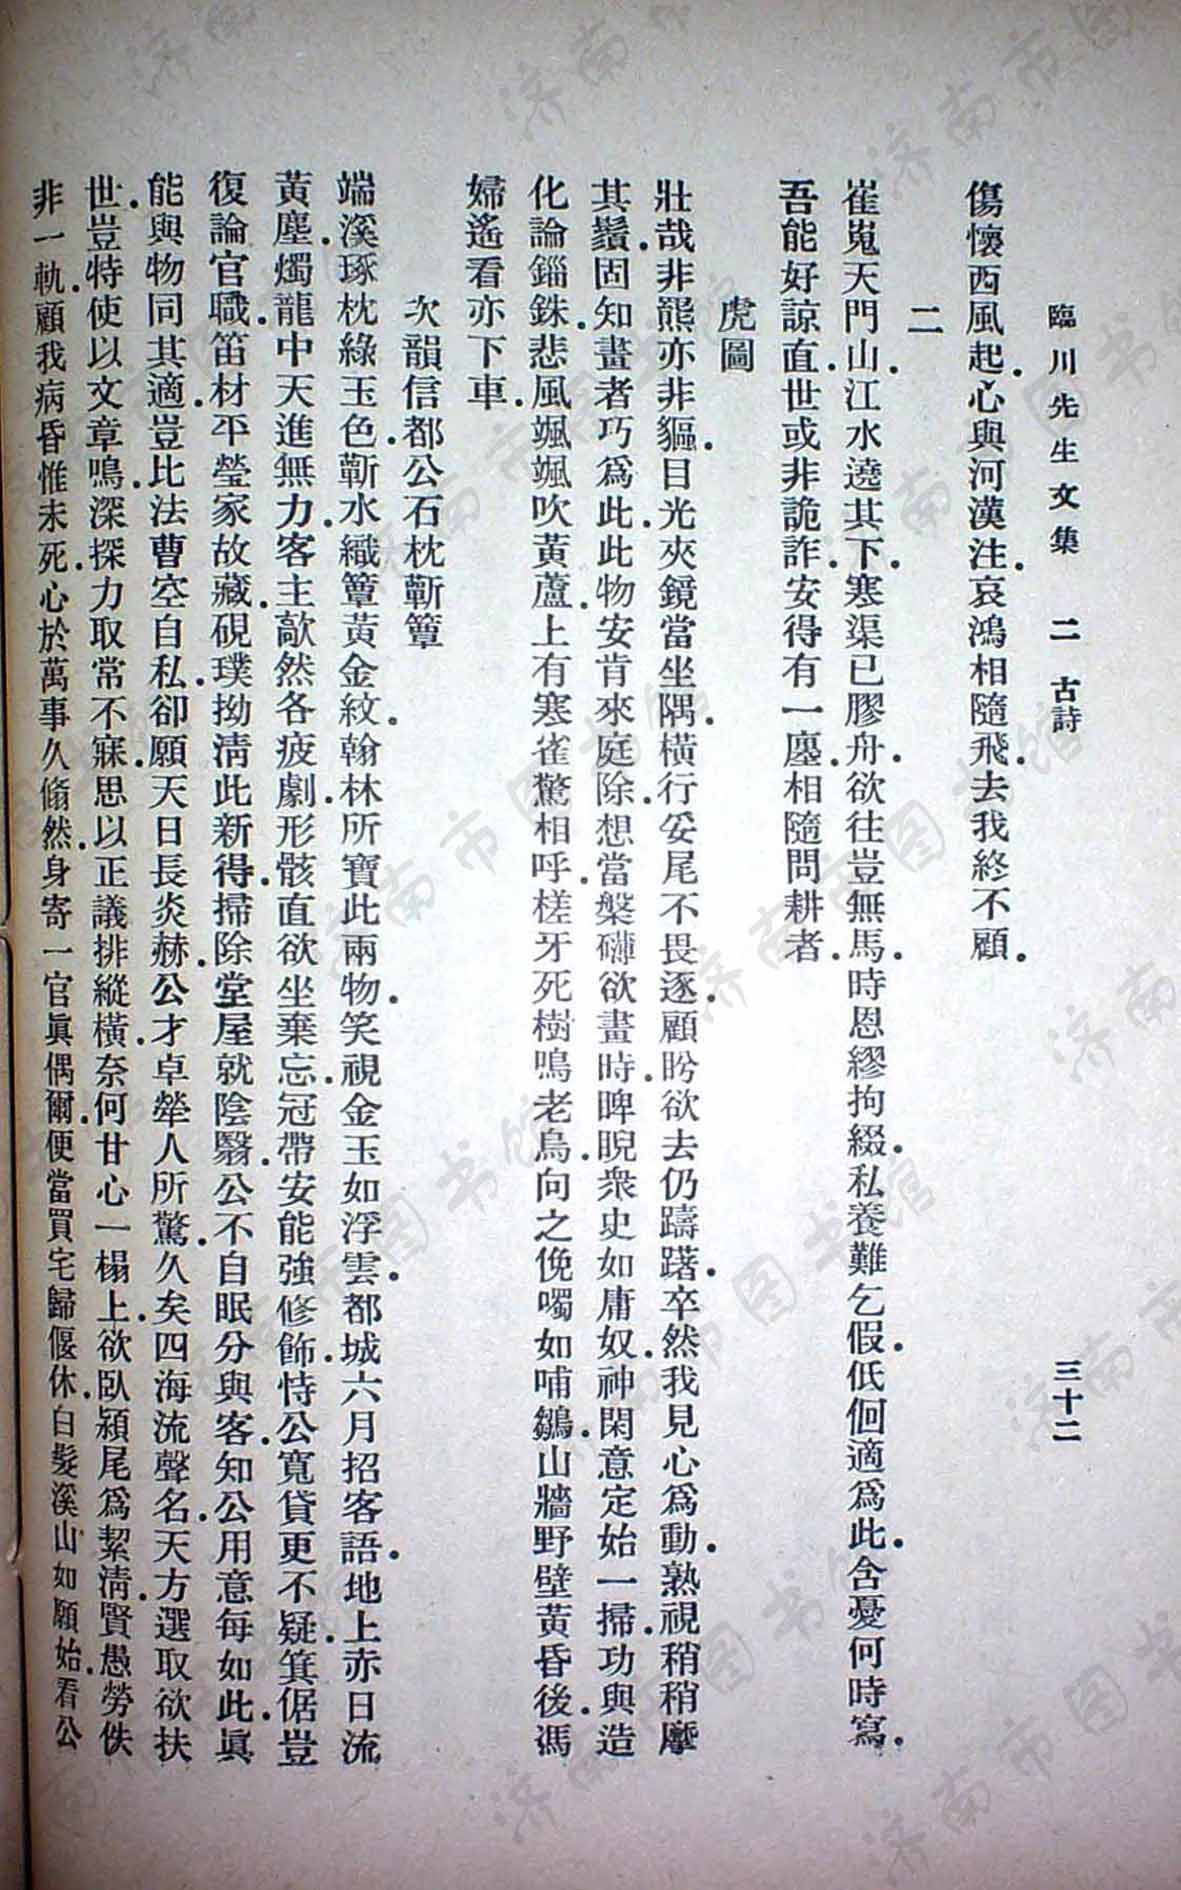 臨川先生文集　二　古詩　三十二
傷懷西風起．心與河漢注．哀鴻相隨飛．去我終不顧．
二
崔嵬天門山．江水遶其下．寒渠已膠舟．欲往豈無馬．時恩繆拘綴．私養難乞假．低佪適爲此．含憂何時寫．
吾能好諒直．世或非詭詐．安得有一廛．相隨問耕者．
虎圖
壯哉非羆亦非貙．目光夾鏡當坐隅．橫行妥尾不畏逐．顧盻欲去仍躊躇．卒然我見心爲動．熟視稍稍摩
其鬚．固知畫者巧爲此．此物安肯來庭除．想當槃礴欲畫時．睥睨衆史如庸奴．神閑意定始一掃．功與造
化論錙銖．悲風颯颯吹黃蘆．上有寒雀驚相呼．槎牙死樹鳴老烏．向之俛噣如哺鶵．山牆野壁黃昏後．馮
婦遙看亦下車．
次韻信都公石枕蘄簟
端溪琢枕綠玉色．蘄水織簟黃金紋．翰林所寶此兩物．笑視金玉如浮雲．都城六月招客語．地上赤日流
黃塵．燭龍中天進無力．客主歊然各疲劇．形骸直欲坐棄忘．冠帶安能強修飾．恃公寬貸更不疑．箕倨豈
復論官職．笛材平瑩家故藏．硯璞拗淸此新得．掃除堂屋就陰翳．公不自眠分與客．知公用意每如此．眞
能與物同其適．豈比法曹空自私．卻願天日長炎赫．公才卓犖人所驚．久矣四海流聲名．天方選取欲扶
世．豈特使以文章鳴．深探力取常不寐．思以正議排縱橫．奈何甘心一榻上．欲臥潁尾爲絜淸．賢愚勞佚
非一軌．顧我病昏惟未死．心於萬事久翛然．身寄一官眞偶爾．便當買宅歸偃休．白髮溪山如願始．看公